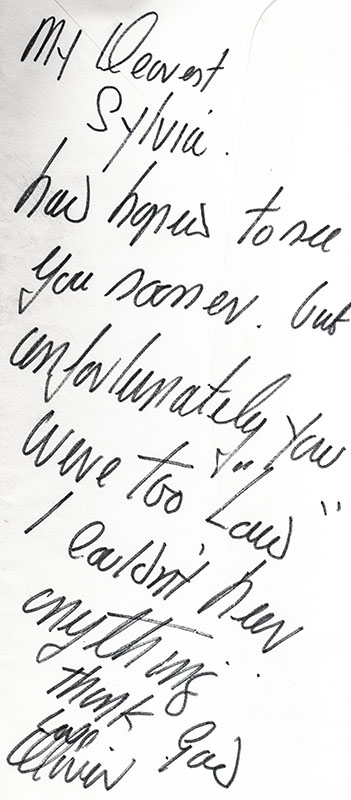 My Dearest
Sylvia.
had hoped to see
you sooner. but
unfortunately you
were too "Loud"
I couldn't hear
anything.
thank God
Love
Olivier